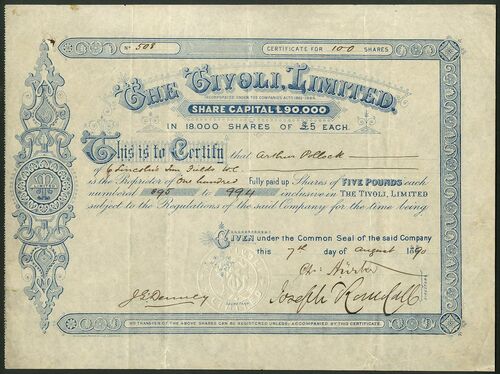 No 508
CERTIFICATE FOR 100 SHARES
THE TIVOLI, LIMITED.
INCORPORATED UNDER THE COMPANIES ACTS 1862-1886.
SHARE CAPITAL £90,000
IN 18,000 SHARES OF £5 EACH.
This is to Certify that Arthur Pollock
of 6 Lincoln's Inn Fields W.C
is the Proprietor of One hundred Fully paid up Shares of FIVE POUNDS each
numbered 895 to 994 inclusive in THE TIVOLI, LIMITED
subject to the Regulations of the said Company for the time being
GIVEN under the Common Seal of the said Company
this 7th day of August 1890
J. E. Denney
SECRETARY
Joseph
NO TRANSFER OF THE ABOVE SHARES CAN BE REGISTERED UNLESS ACCOMPANIED BY THIS CERTIFICATE.